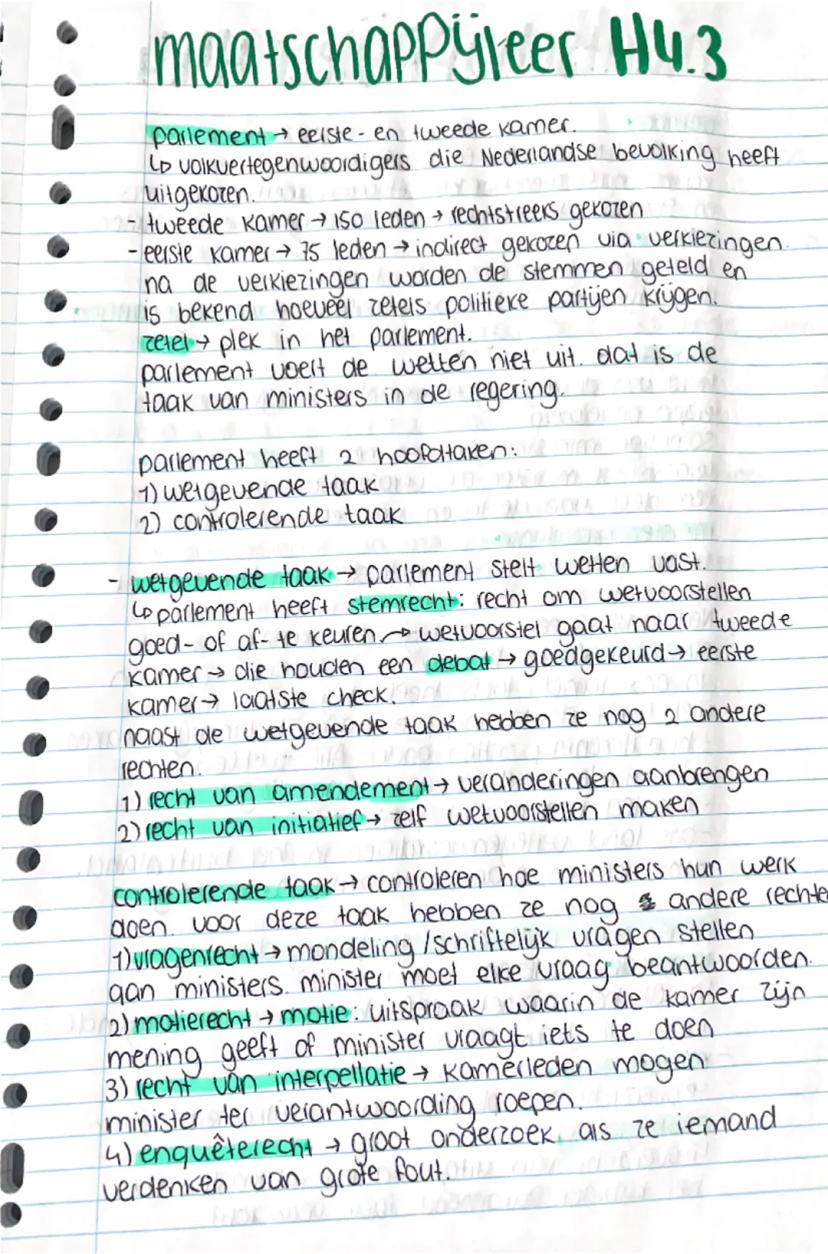 maatschappijleer H4.3
parlement → eerste- en tweede kamer.
↳ volkvertegenwoordigers die Nederlandse bevolking heeft
uitgekozen.
- tweede kamer → 150 leden → rechtstreeks gekozen
- eerste kamer → 75 leden → indirect gekozen via verkiezingen.
na de verkiezingen worden de stemmen geteld en
is bekend hoeveel zetels politieke partijen krijgen.
zetel → plek in het parlement.
parlement voert de wetten niet uit. dat is de
taak van ministers in de regering.
parlement heeft 2 hoofdtaken:
1) wetgevende taak
2) controlerende taak
- wetgevende taak → parlement stelt wetten vast.
↳ parlement heeft stemrecht: recht om wetvoorstellen
goed- of af- te keuren → wetvoorstel gaat naar tweede
kamer → die houden een debat → goedgekeurd → eerste
kamer → laatste check.
naast de wetgevende taak hebben ze nog 2 andere
rechten.
1) recht van amendement → veranderingen aanbrengen
2) recht van initiatief → zelf wetvoorstellen maken
controlerende taak → controleren hoe ministers hun werk
doen. voor deze taak hebben ze nog andere rechte
1) vragenrecht → mondeling / schriftelijk vragen stellen
aan ministers. minister moet elke vraag beantwoorden.
2) motierecht → motie: uitspraak waarin de kamer zijn
mening geeft of minister vraagt iets te doen
3) recht van interpellatie → kamerleden mogen
minister ter verantwoording roepen.
4) enquêterecht → groot onderzoek, als ze iemand
verdenken van grote fout.